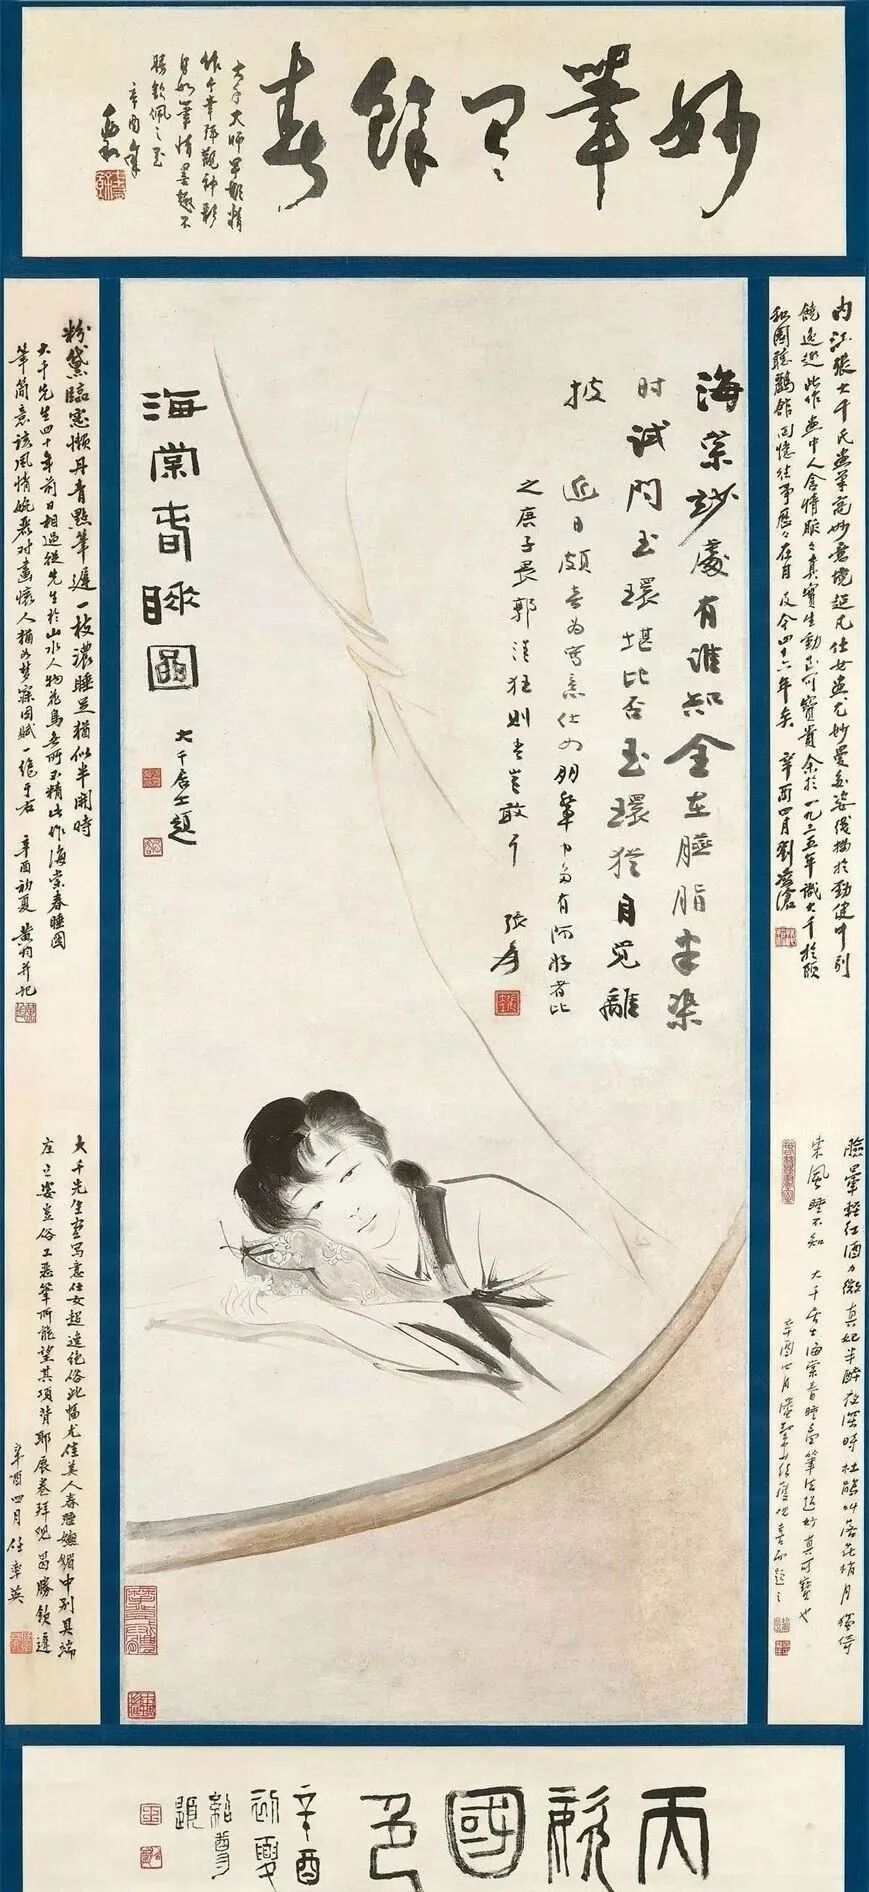 妙筆有餘春
大千大師早年精
作今幸拜觀神彩
自如筆情墨趣不
勝欽佩之至
辛酉年
海棠春睡圖
大千居士題
海棠妙處有誰知全在臙脂半染
時試問玉環堪比否玉環猶自覺離
披
近日頗喜為寫意仕女朋輩中多有阿好者比
之庚子畏郭清狂則吾豈敢
張爰
內江張大千氏畫筆高妙意境超凡仕女畫尤妙曼多姿線描於勁健中別
饒逸趣此作畫中人含情脈々真實生動正可寶貴余於一九三五年識大千於頤
和園聽鸝館回憶往事歷々在目及今四十六年矣 辛酉四月劉凌滄
粉黛臨窗懶丹青點筆遲一枝濃睡足猶似半開時
大千先生四十年前日相過從先生於山水人物花鳥無所不精此作海棠春睡圖
筆簡意該風情婉麗對畫懷人猶如夢寐因賦一絕于右 辛酉初夏 黃均并記
臉暈輕紅酒力微真妃半醉夜深時杜鵑叫落花梢月獨倚
東風睡不知 大千居士海棠春睡圖筆法超妙真可寶也
辛酉四月
大千先生寫意仕女超逸絕俗此幅尤佳美人春睡嫵媚中別具端
莊之姿豈俗工惡筆所能望其項背耶展卷拜觀曷勝欽遲
辛酉四月任率英
天姿國色
辛酉
初夏
題